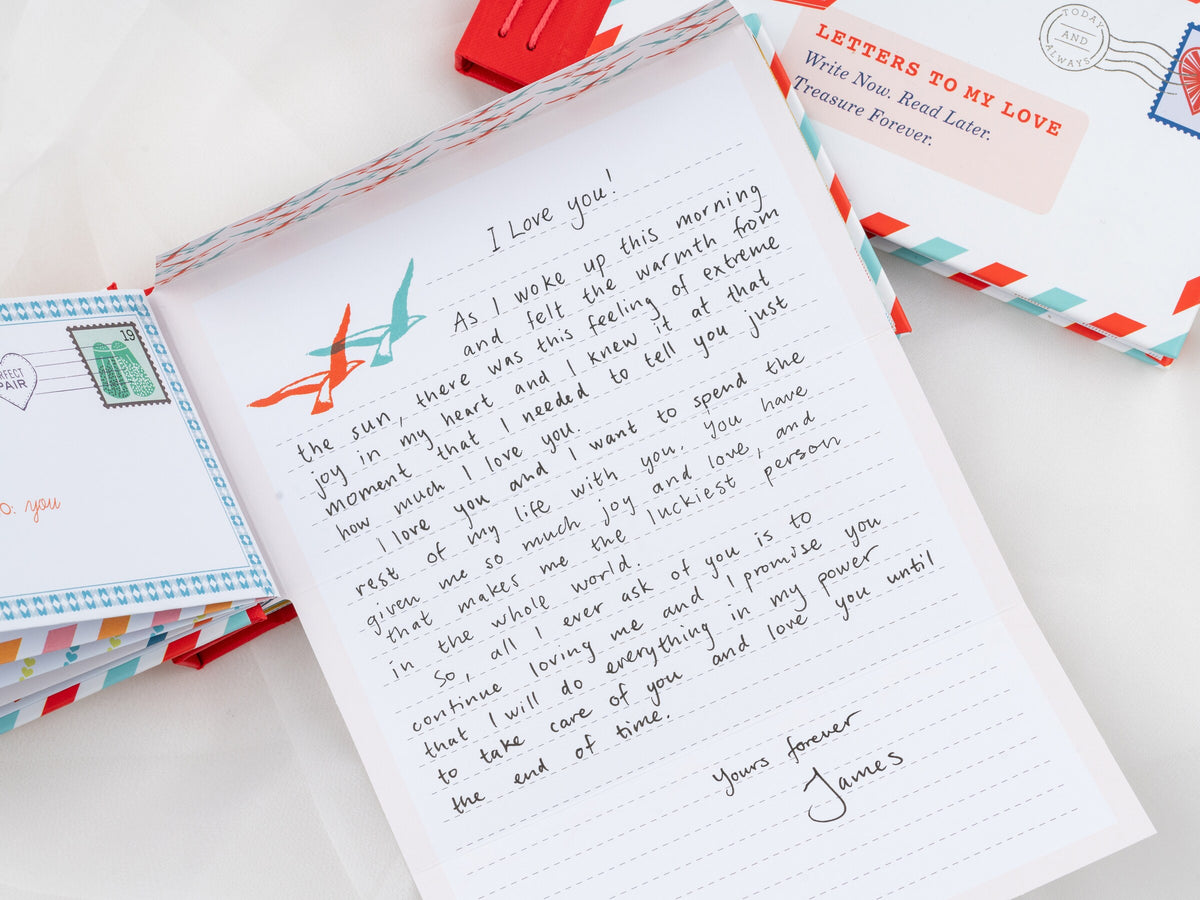 TODAY
AND
ALWAYS
LETTERS TO MY LOVE
Write Now. Read Later.
Treasure Forever.
I Love you!
As I woke up this morning
and felt the warmth from
the sun, there was this feeling of extreme
joy in my heart and I knew it at that
moment that I needed to tell you just
how much I love you.
I love you and I want to spend the
rest of my life with you. You have
given me so much joy and love, and
that makes me the luckiest person
in the whole world.
So, all I ever ask of you is to
continue loving me and I promise you
that I will do everything in my power
to take care of you and love you until
the end of time.
Yours forever
James
19
RFECT
PAIR
O: you